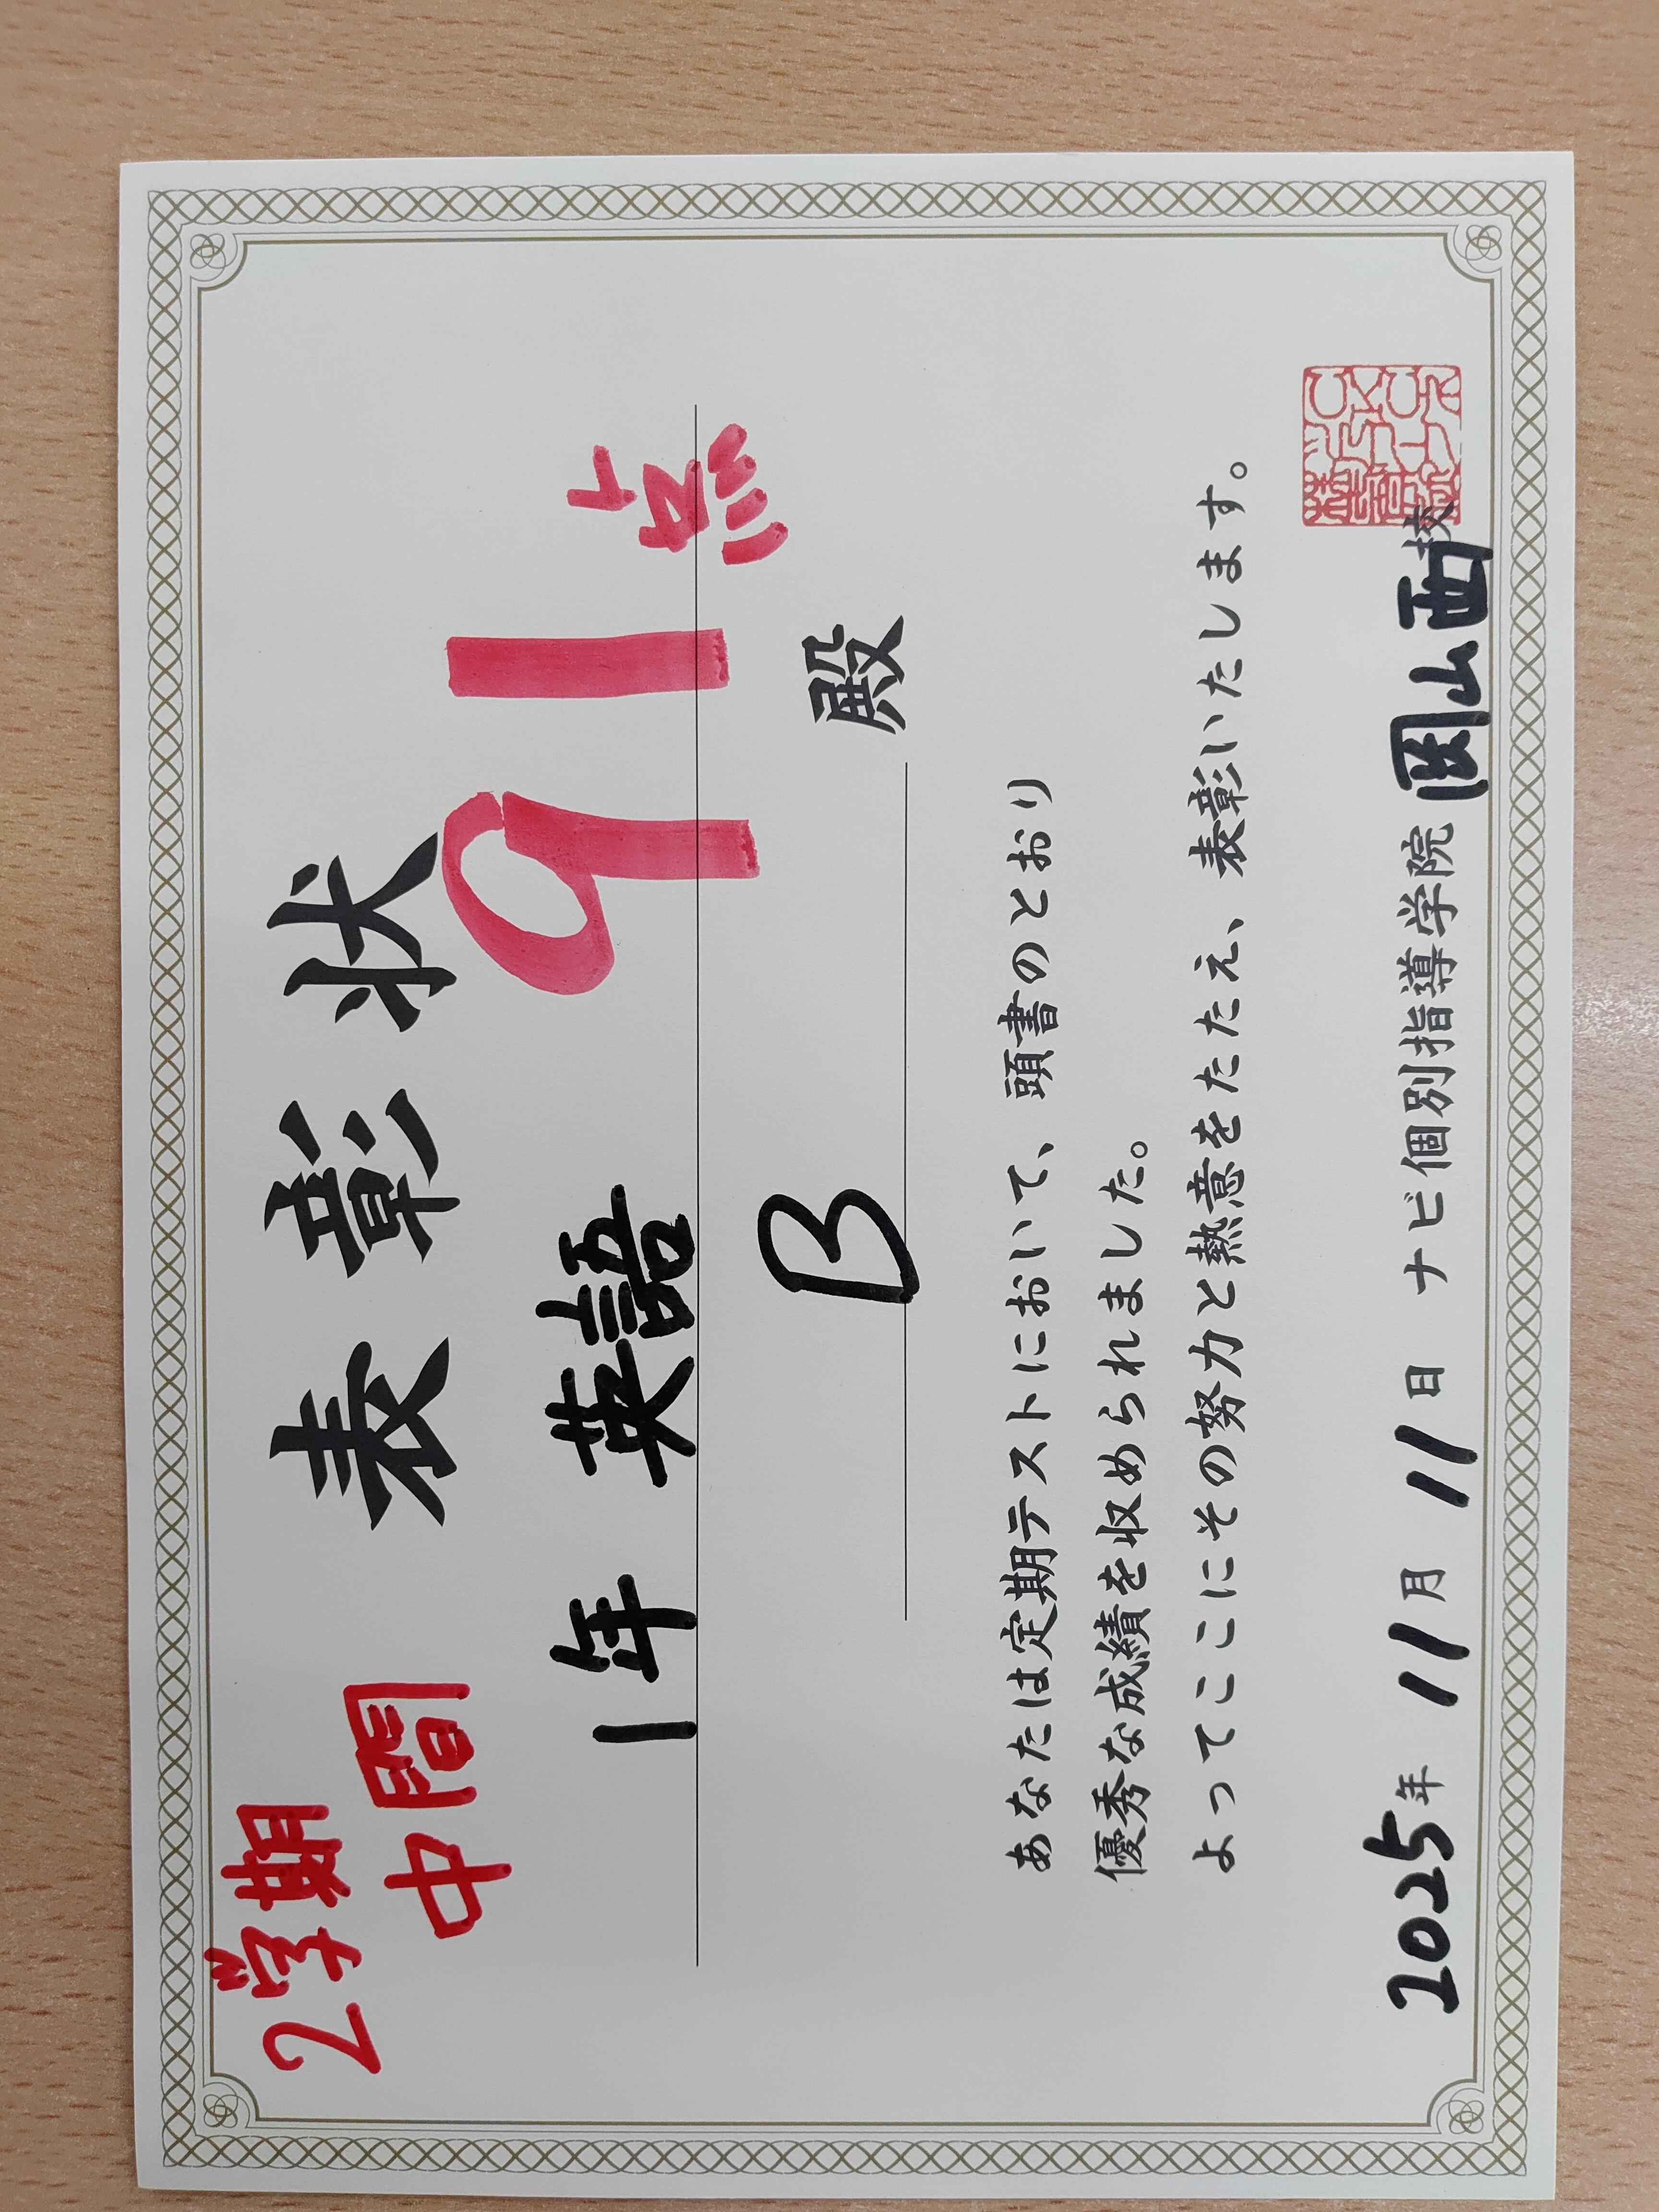 2学期
中間
表彰状
1年 英語 91点
B 殿
あなたは定期テストにおいて、頭書のとおり
優秀な成績を収められました。
よってここにその努力と熱意をたたえ、表彰いたします。
2025年 11月 11日 ナビ個別指導学院 岡山西校